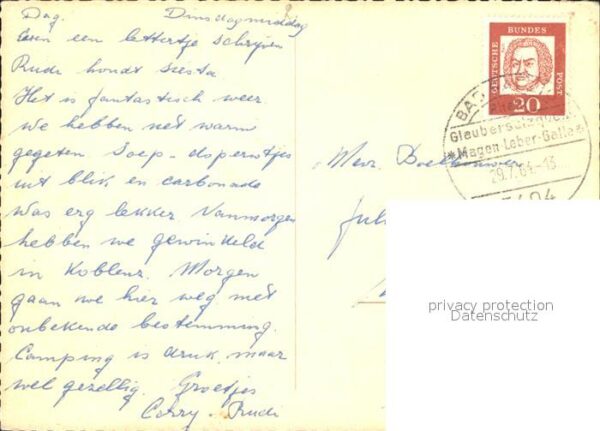 Dag. Dinsdagmiddag
Even een lettertje schrijven
Rudi houdt siesta
Het is fantastisch weer.
We hebben net warm
gegeten Soep - doperwtjes
uit blik en carbonade
Was erg lekker Vanmorgen
hebben we gewinkeld
in Koblenz. Morgen
gaan we hier weg met
onbekende bestemming.
Camping is druk, maar
wel gezellig. Groetjes
Corry - Rudi
Mevr.
DEUTSCHE BUNDESPOST
20
BAD
Glaubersalzquelle
*Magen-Leber-Galle*
29.7.64-13
privacy protection
Datenschutz